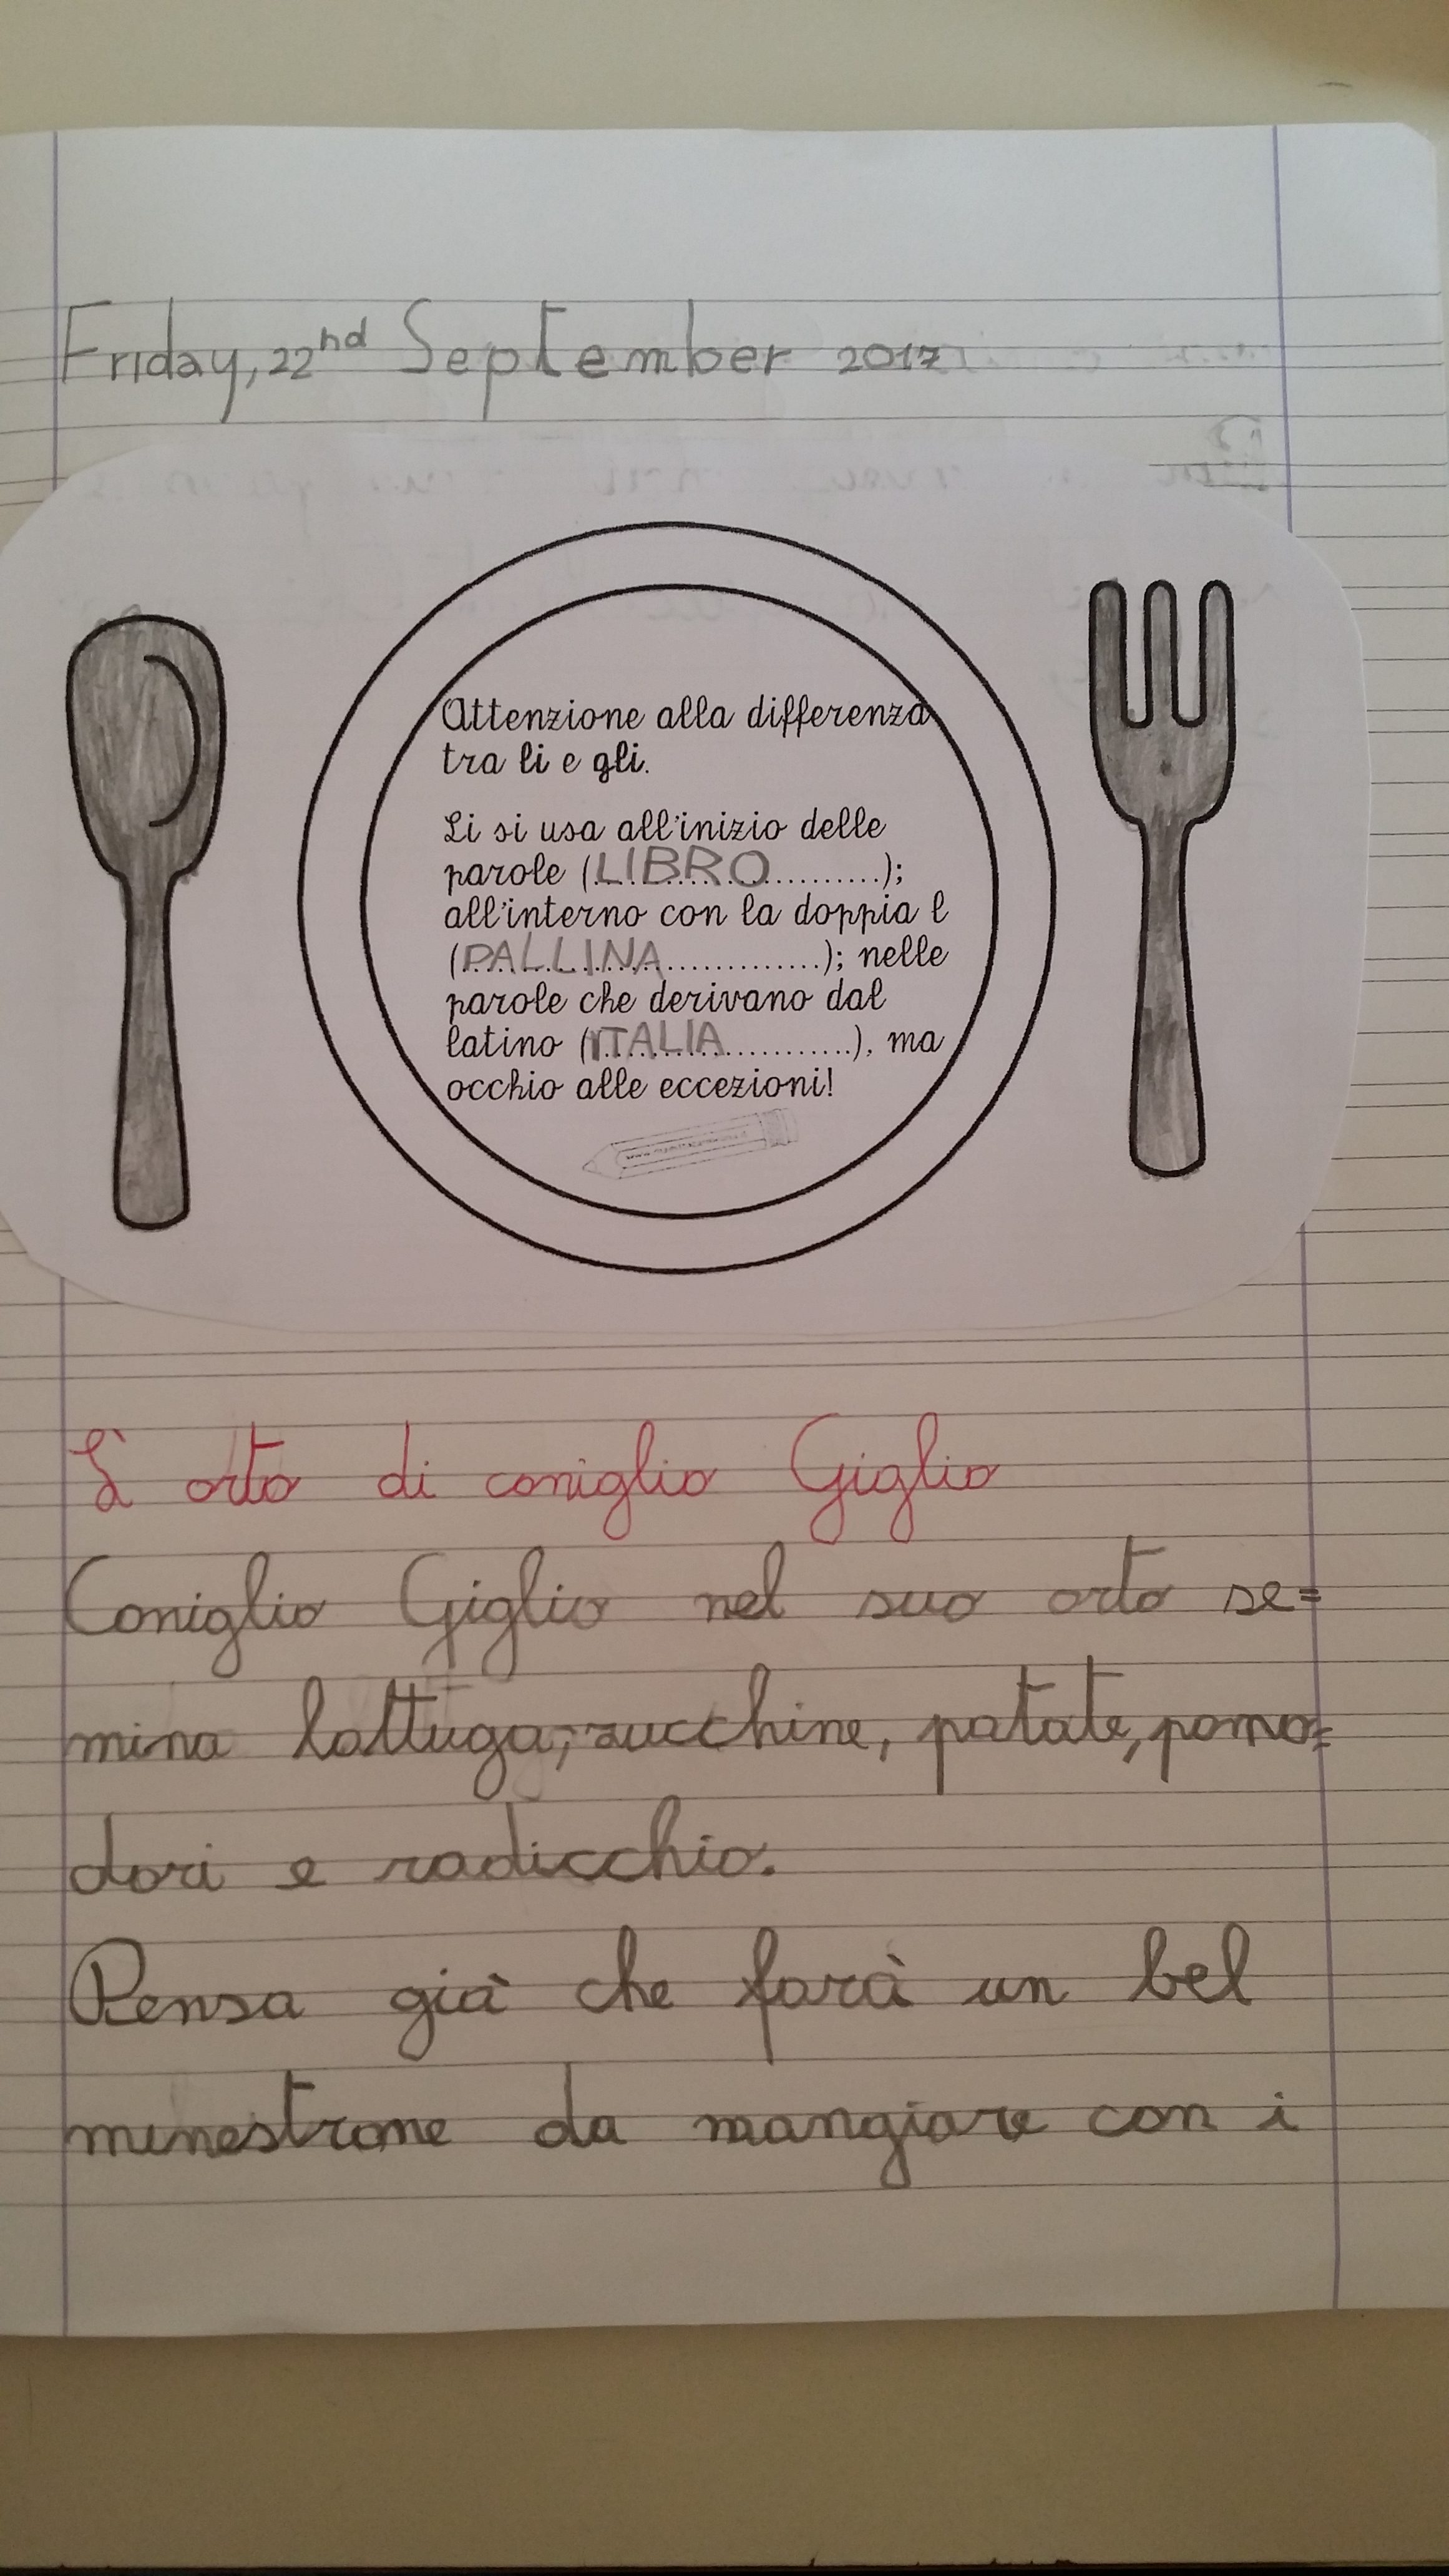 Friday, 22nd September 2017
Attenzione alla differenza
tra li e gli.
Li si usa all'inizio delle
parole (LIBRO....................);
all'interno con la doppia l
(PALLINA....................); nelle
parole che derivano dal
latino (ITALIA....................), ma
occhio alle eccezioni!
L' orto di coniglio Giglio
Coniglio Giglio nel suo orto se=
mina lattuga, zucchine, patate, pomo=
dori e radicchio.
Pensa già che farà un bel
minestrone da mangiare con i